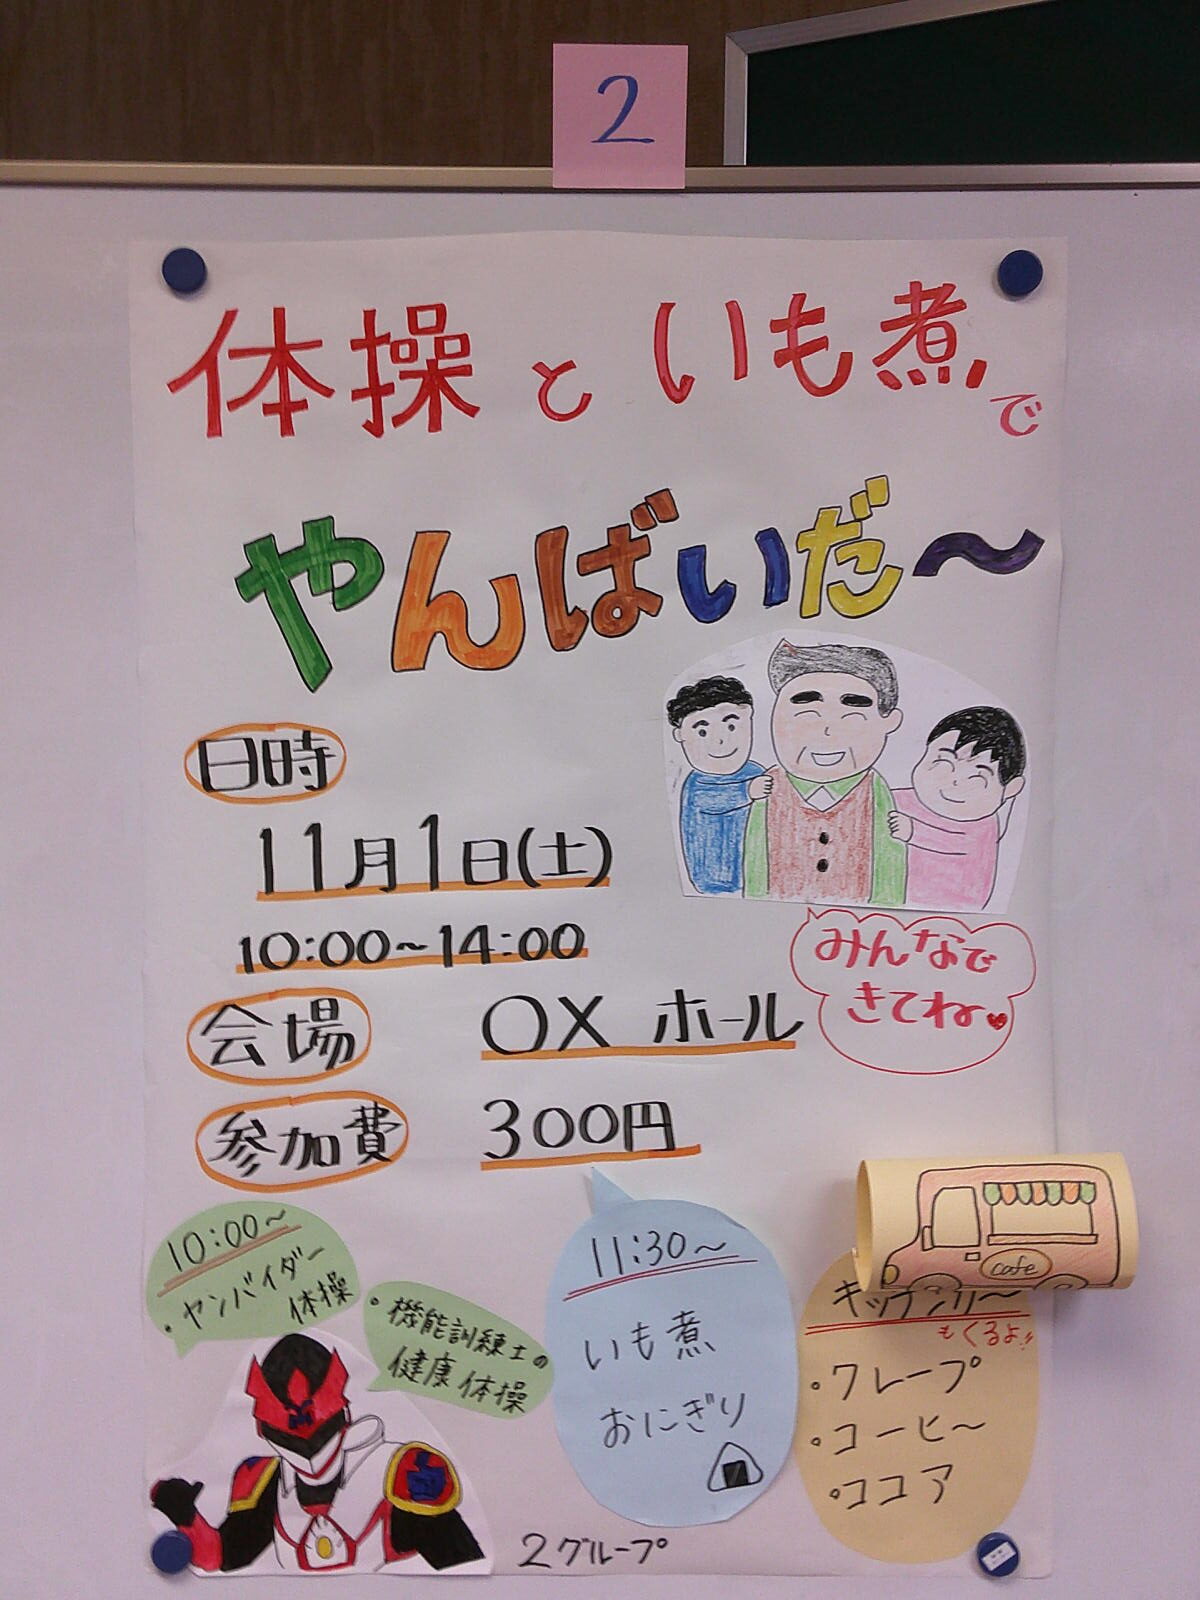 2
体操といも煮で
やんばいだ～
日時
11月1日(土)
10:00~14:00
みんなで
きてね
会場 OX ホール
参加費 300円
10:00~
・ヤンバイダー
体操
・機能訓練士の
健康体操
11:30~
いも煮
おにぎり
cafe
もくるよ!!
・クレープ
・コーヒー
・ココア
2グループ